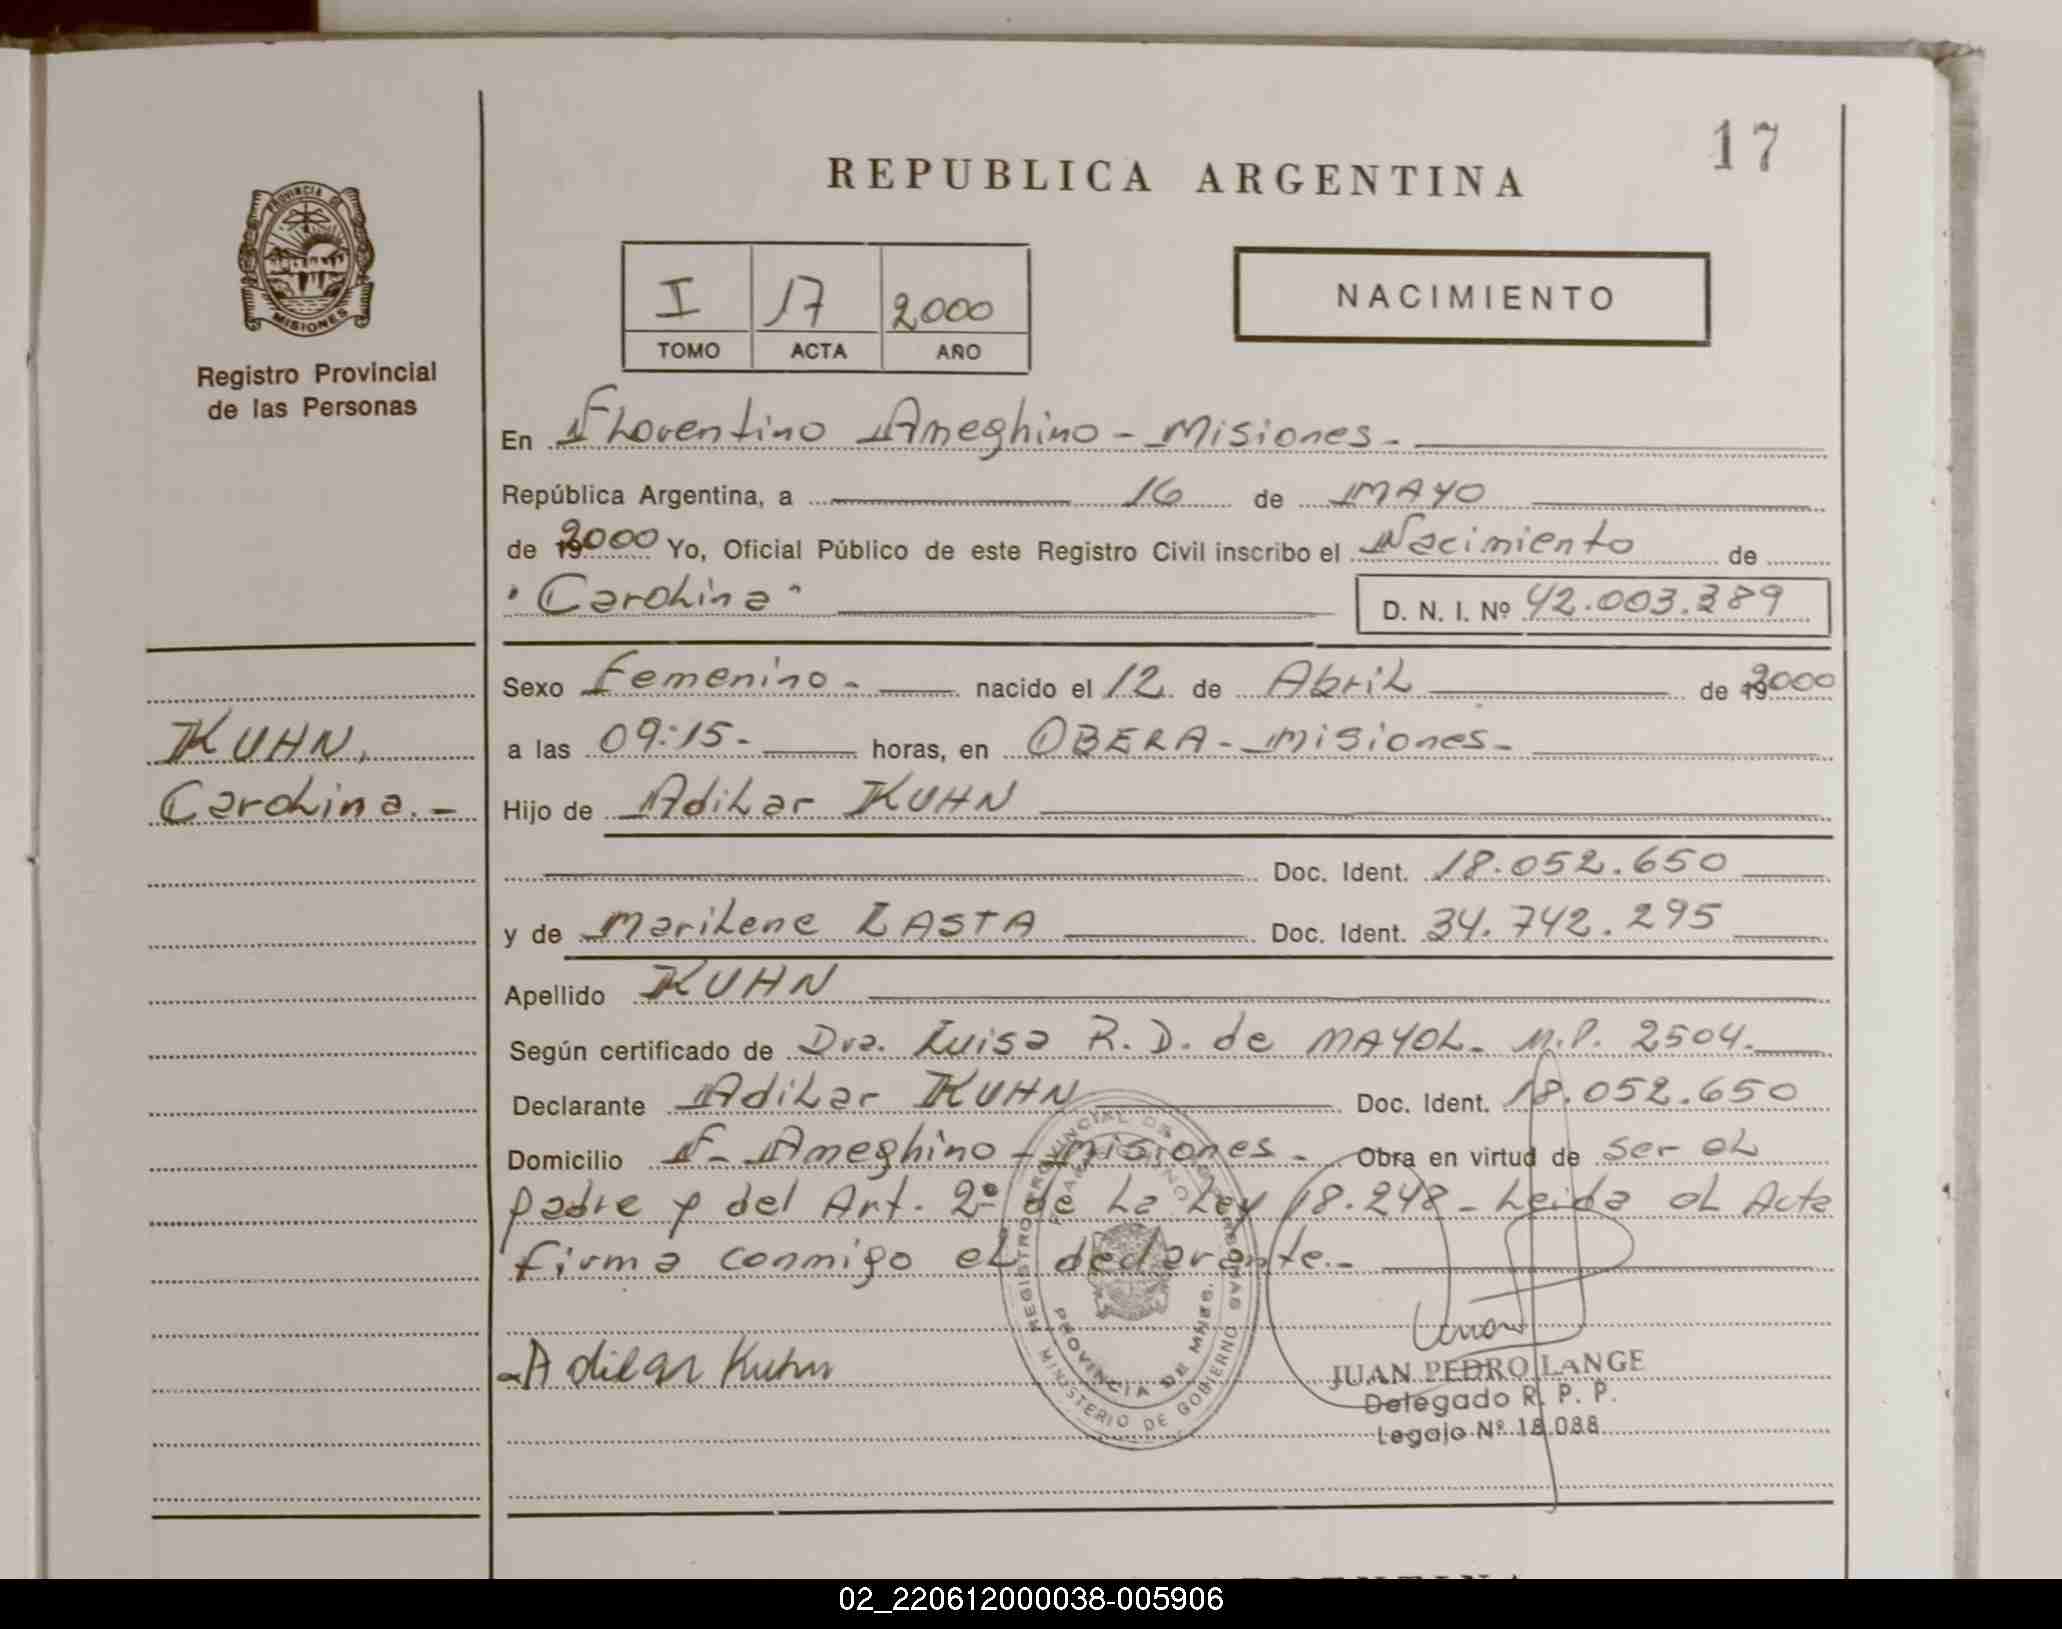 17
REPUBLICA ARGENTINA
PROVINCIA DE
MISIONES
Registro Provincial
de las Personas
I 17 2000
TOMO ACTA AÑO
NACIMIENTO
En Florentino Ameghino - Misiones -
República Argentina, a 16 de MAYO
de 2000 Yo, Oficial Público de este Registro Civil inscribo el Nacimiento de
"Carolina" D. N. I. Nº 42.003.389
Sexo Femenino - nacido el 12 de Abril de 2000
KUHN,
a las 09:15 - horas, en OBERA - Misiones -
Carolina. -
Hijo de Adilar KUHN
Doc. Ident. 18.052.650
y de Marilene LASTA Doc. Ident. 34.742.295
Apellido KUHN
Según certificado de Dra. Luisa R. D. de MAYOL - M.P. 2504.
Declarante Adilar KUHN Doc. Ident. 18.052.650
Domicilio F. Ameghino - Misiones - Obra en virtud de ser el
padre y del Art. 2º de La Ley 18.248 - Leida el Acta
firma conmigo el declarante. -
REGISTRO PROVINCIAL DE LAS PERSONAS
PROVINCIA DE MNES.
MINISTERIO DE GOBIERNO
Adilar Kuhn
JUAN PEDRO LANGE
Delegado R. P. P.
Legajo Nº 18.088
02_220612000038-005906